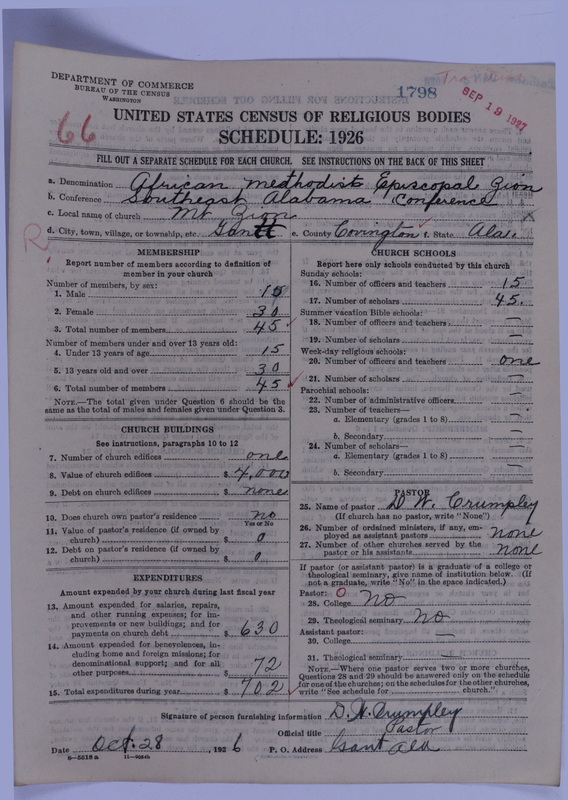 DEPARTMENT OF COMMERCE
BUREAU OF THE CENSUS
WASHINGTON
1798
SEP 19 1927
66
UNITED STATES CENSUS OF RELIGIOUS BODIES
SCHEDULE: 1926
FILL OUT A SEPARATE SCHEDULE FOR EACH CHURCH. SEE INSTRUCTIONS ON THE BACK OF THIS SHEET
a. Denomination African Methodist Episcopal Zion
b. Conference Southeast Alabama Conference
c. Local name of church Mt Zion
d. City, town, village, or township, etc. Gantt e. County Covington f. State Ala.
R
MEMBERSHIP
Report number of members according to definition of
member in your church
Number of members, by sex:
1. Male 15
2. Female 30
3. Total number of members 45
Number of members under and over 13 years old:
4. Under 13 years of age 15
5. 13 years old and over 30
6. Total number of members 45
NOTE.—The total given under Question 6 should be the
same as the total of males and females given under Question 3.
CHURCH BUILDINGS
See instructions, paragraphs 10 to 12
7. Number of church edifices one
8. Value of church edifices $ 4,000
9. Debt on church edifices $ none
10. Does church own pastor's residence? no
Yes or No
11. Value of pastor's residence (if owned by
church) $ 0
12. Debt on pastor's residence (if owned by
church) $ 0
EXPENDITURES
Amount expended by your church during last fiscal year
13. Amount expended for salaries, repairs,
and other running expenses; for im-
provements or new buildings; and for
payments on church debt $ 630
14. Amount expended for benevolences, in-
cluding home and foreign missions; for
denominational support; and for all
other purposes 72
15. Total expenditures during year $ 702
CHURCH SCHOOLS
Report here only schools conducted by this church
Sunday schools:
16. Number of officers and teachers 15
17. Number of scholars 45.
Summer vacation Bible schools:
18. Number of officers and teachers —
19. Number of scholars —
Week-day religious schools:
20. Number of officers and teachers one
21. Number of scholars —
Parochial schools:
22. Number of administrative officers —
23. Number of teachers—
a. Elementary (grades 1 to 8) —
b. Secondary —
24. Number of scholars—
a. Elementary (grades 1 to 8) —
b. Secondary —
PASTOR
25. Name of pastor D. W. Crumpley
(If church has no pastor, write "None")
26. Number of ordained ministers, if any, em-
ployed as assistant pastors none
27. Number of other churches served by the
pastor or his assistants none
If pastor (or assistant pastor) is a graduate of a college or
theological seminary, give name of institution below. (If
not a graduate, write "No" in the space indicated.)
Pastor: O
28. College No
29. Theological seminary No
Assistant pastor:
30. College —
31. Theological seminary —
NOTE.—Where one pastor serves two or more churches,
Questions 28 and 29 should be answered only on the schedule
for one of the churches; on the schedules for the other churches,
write "See schedule for church."
Signature of person furnishing information D. W. Crumpley
Official title Pastor
Date Oct. 28, 1926 P. O. Address Gant Ala
8—5618a